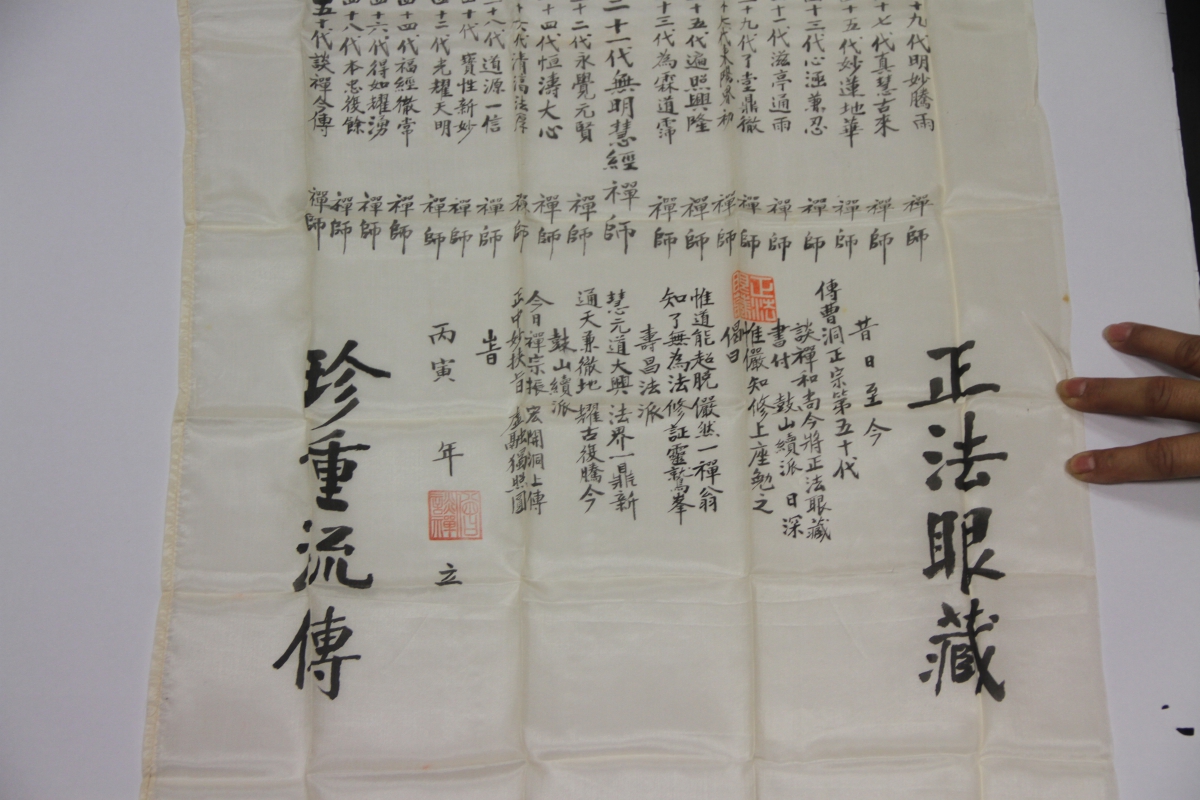 正法眼藏
十九代明妙騰雨禪師
十七代真慧古來禪師
十五代妙蓮地華禪師
十三代心涵兼忍禪師
十一代滋亭通雨禪師
九代了堂鼎徹禪師
禪師
十五代遍照興隆禪師
十三代為霖道霈禪師
二十一代無明慧經禪師
十二代永覺元賢禪師
十四代恒濤大心禪師
十六代清法禪師
十八代道源一信禪師
十代寶性新妙禪師
十二代光耀天明禪師
十四代福經徵常禪師
十六代得如耀湧禪師
十八代本忠後餘禪師
五十代談禪今傳禪師
昔日至今
傳曹洞正宗第五十代
談禪和尚今將正法眼藏
書付 鼓山續派 日深
惟嚴知修上座勉之
偈曰
惟道能超脫儼然一禪翁
知了無為法修証靈鷲峯
壽昌法派
慧元道大興 法界一鼎新
通天兼徹地 耀古復騰今
鼓山續派
今日禪宗振 宏開洞上傳
正中妙挾旨 虛融獨照圓
旹
丙寅 年 立
珍重流傳